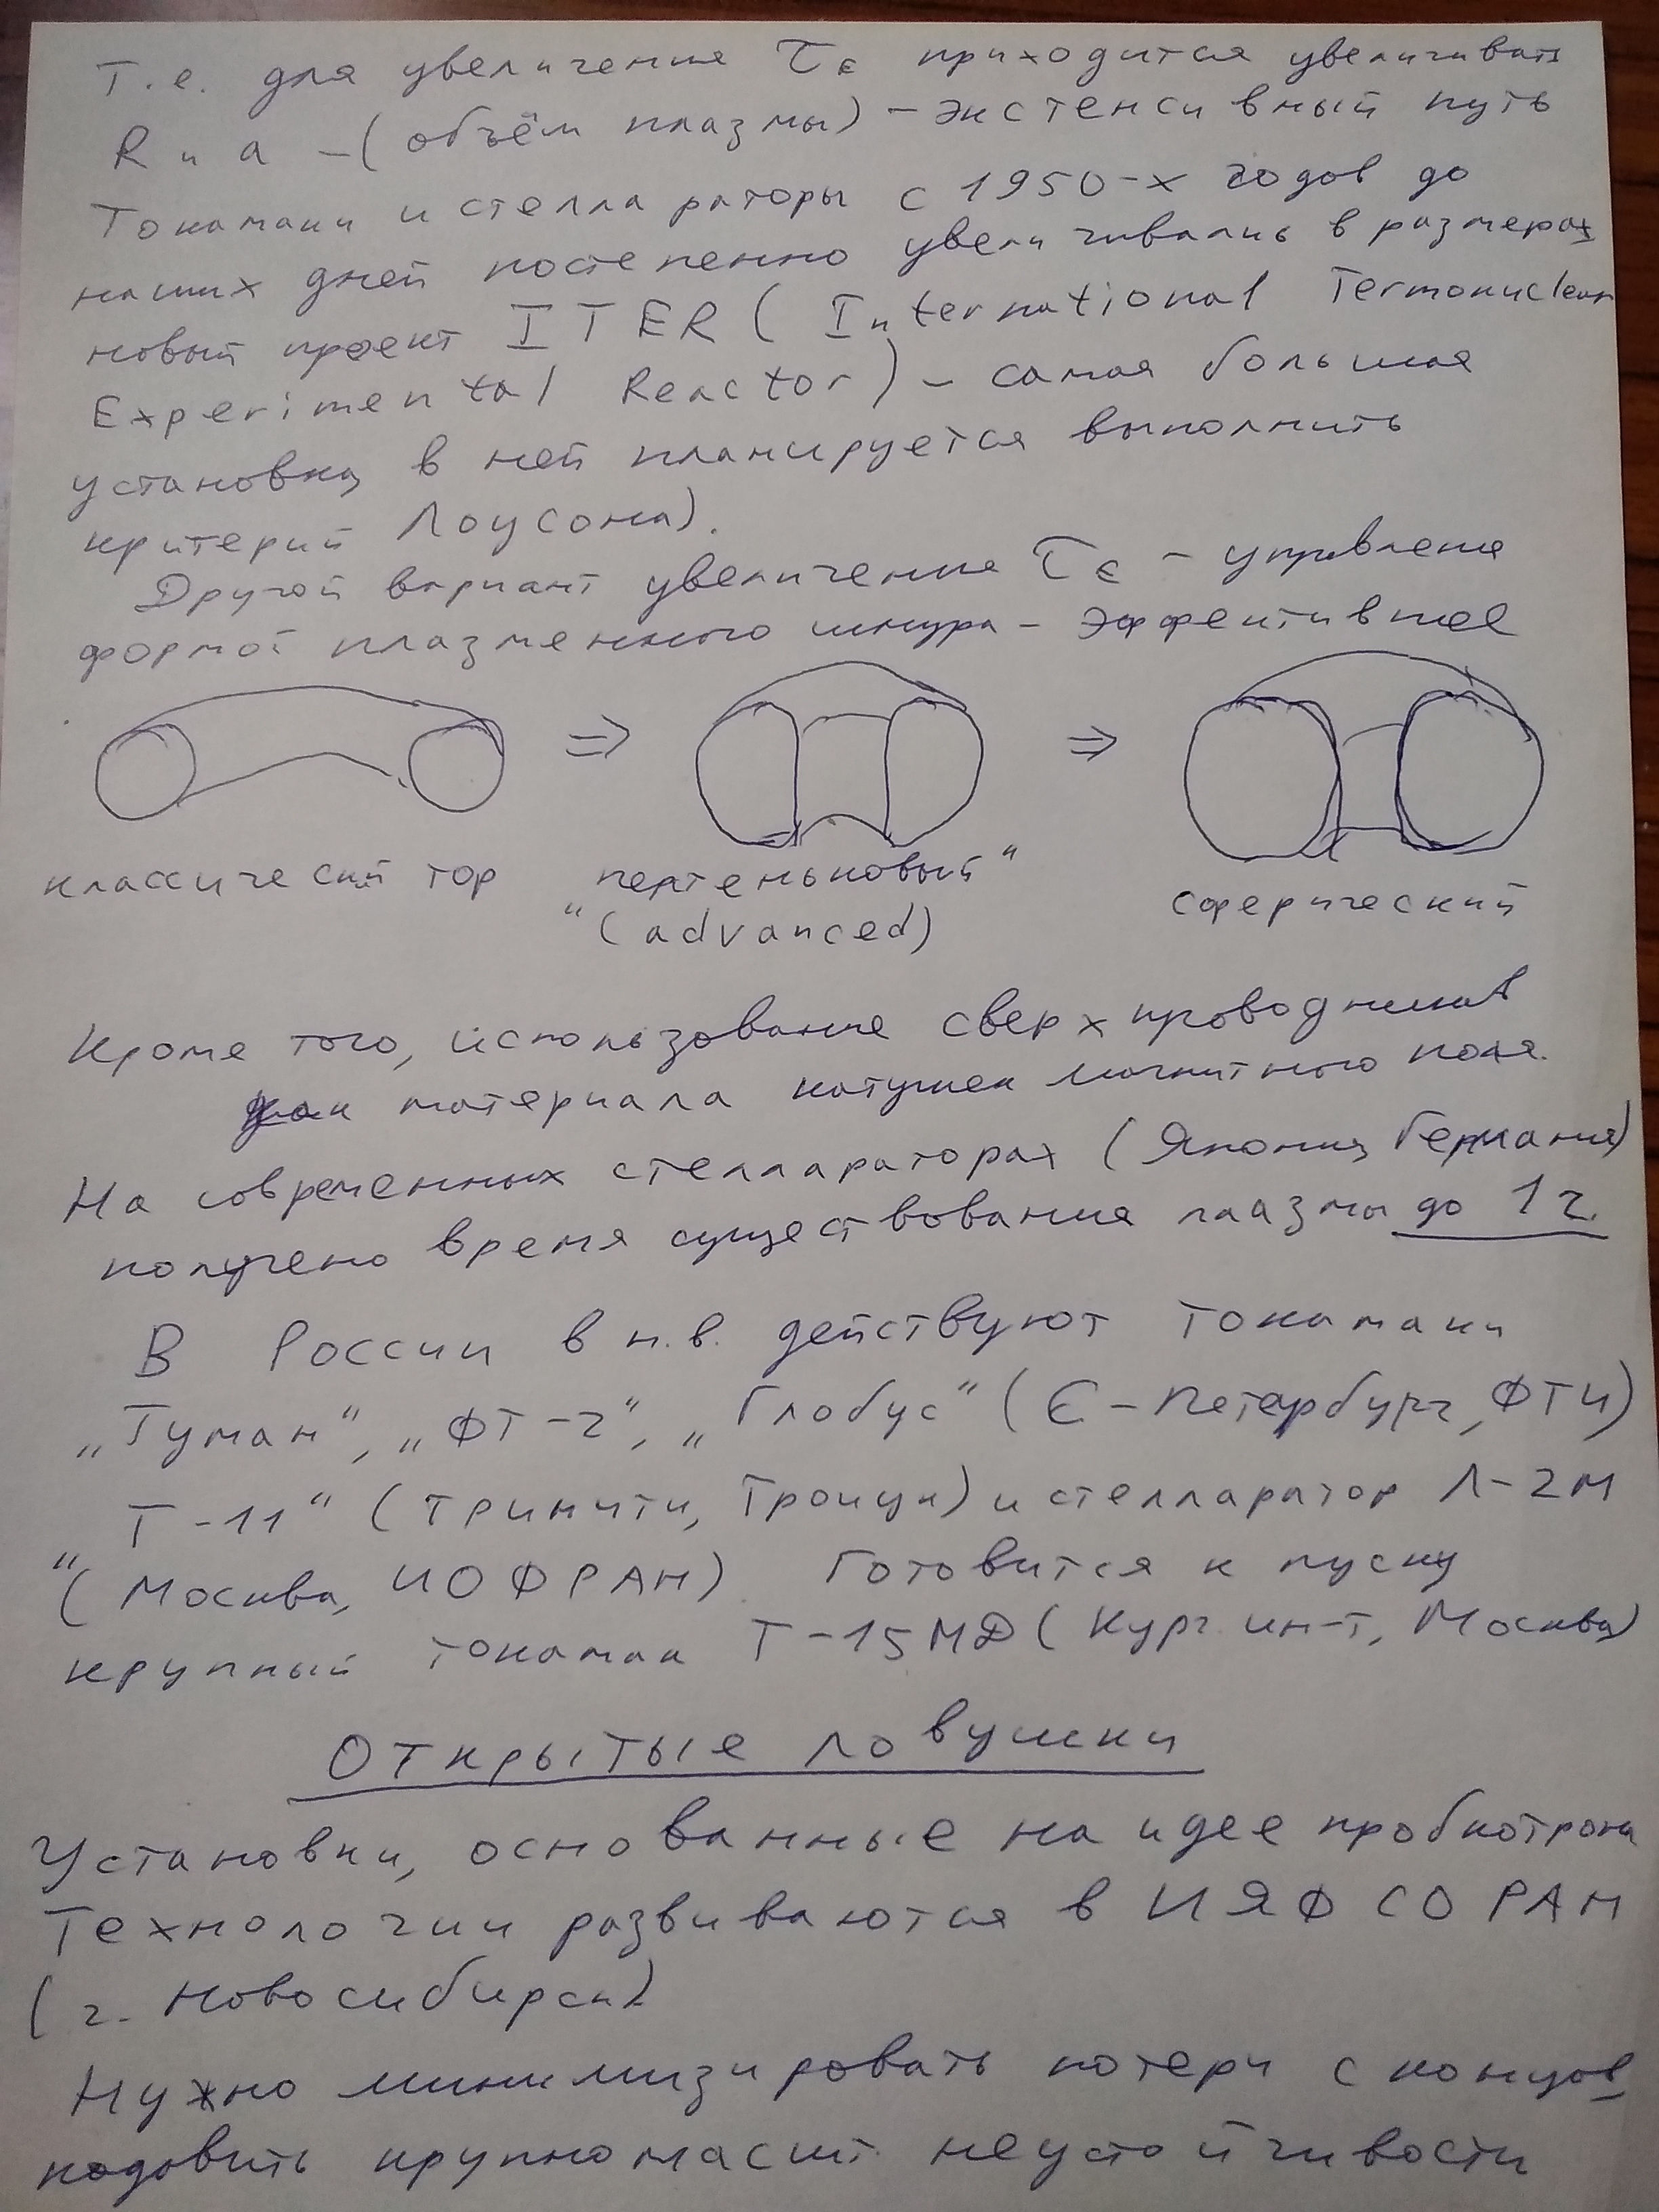 Т.е. для увеличения τε приходится увеличивать
R и a – (объём плазмы) – экстенсивный путь
Токамаки и стеллараторы с 1950-х годов до
наших дней постепенно увеличивались в размерах
новый проект ITER ( International Termonuclear
Experimental Reactor) – самая большая
установка, в ней планируется выполнить
критерий Лоусона).
Другой вариант увеличения τε – управление
формой плазменного шнура – эффективнее
⇒ ⇒
классический тор
"(advanced)
сферический
Кроме того, использование сверхпроводников
как материала катушек магнитного поля.
На современных стеллараторах (Япония, Германия)
получено время существования плазмы до 1 г.
В России в н.в. действуют токамаки
„Туман“, „ФТ-2“, „Глобус“ (С-Петербург, ФТИ)
Т-11“ (Тринити, Троицк) и стелларатор Л-2М
“(Москва, ИОФРАН) Готовится к пуску
крупный токамак Т-15МД ( Кург. ин-т, Москва)
Открытые ловушки
Установки, основанные на идее пробкотрона
Технологии развиваются в ИЯФ СО РАН
( г. Новосибирск)
Нужно минимизировать потери с концов
подавить крупномасшт. неустойчивости